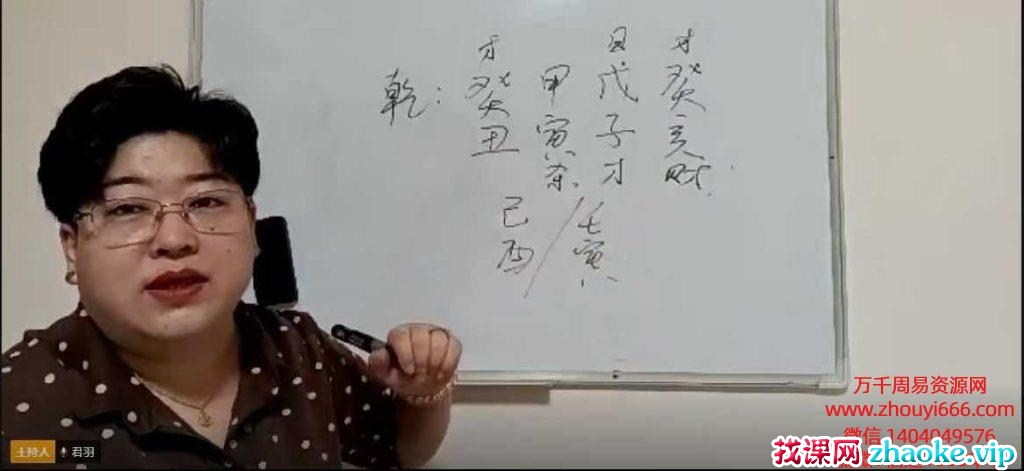 才 日 才
乾: 癸 甲 戊 癸
丑 寅 子 亥
杀 才 财
己 / 壬
酉 寅
万千周易资源网
www.zhouyi666.com
微信 1404049576
找课网 zhaoke.vip
主持人 君羽